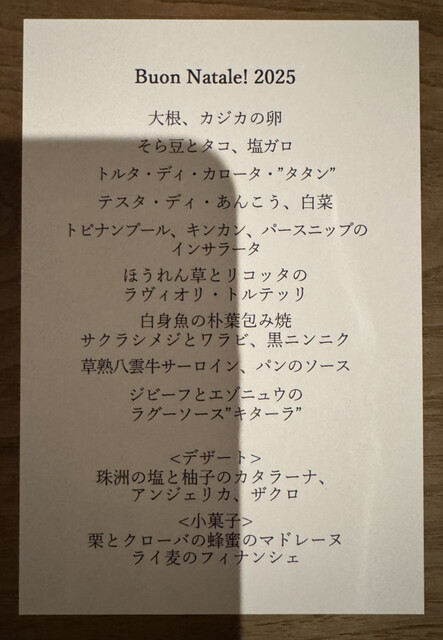 Buon Natale! 2025
大根、カジカの卵
そら豆とタコ、塩ガロ
トルタ・ディ・カロータ・”タタン”
テスタ・ディ・あんこう、白菜
トピナンブール、キンカン、パースニップの
インサラータ
ほうれん草とリコッタの
ラヴィオリ・トルテッリ
白身魚の朴葉包み焼
サクラシメジとワラビ、黒ニンニク
草熟八雲牛サーロイン、パンのソース
ジビーフとエゾニュウの
ラグーソース”キターラ”
<デザート>
珠洲の塩と柚子のカタラーナ、
アンジェリカ、ザクロ
<小菓子>
栗とクローバの蜂蜜のマドレーヌ
ライ麦のフィナンシェ